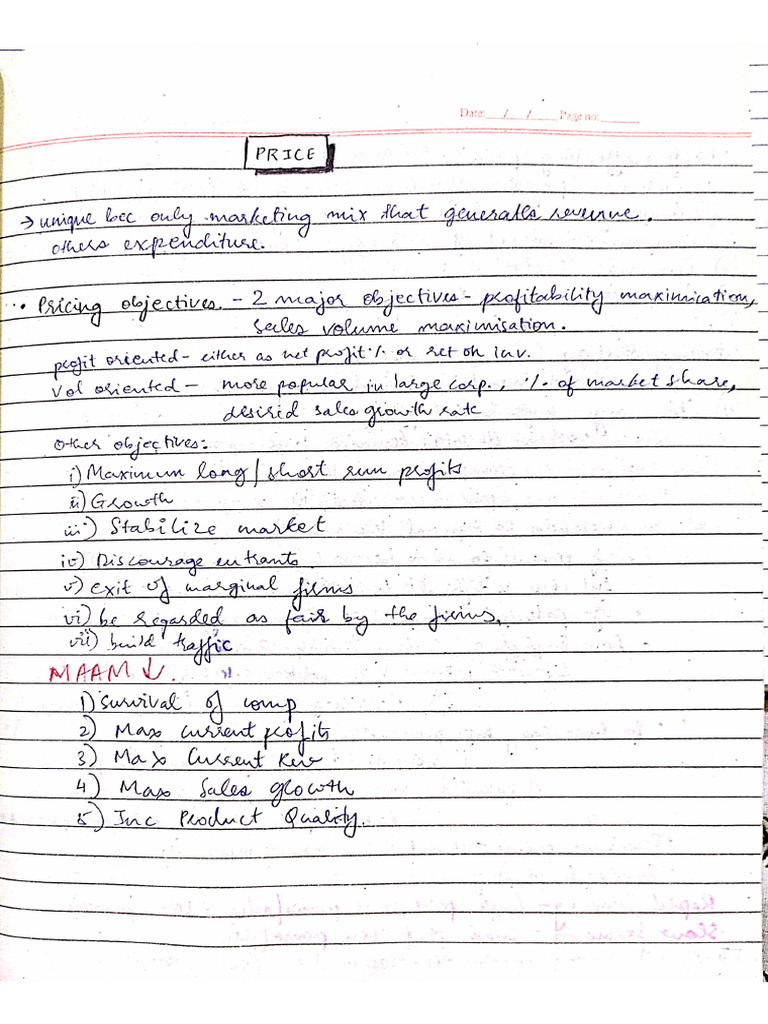 Date: __/__/____ Page no: ______
PRICE
→ unique bec only marketing mix that generates revenue.
others expenditure.
• Pricing objectives - 2 major objectives - profitability maximization,
sales volume maximisation.
profit oriented - either as net profit % or ret on inv.
Vol oriented - more popular in large corp., % of market share,
desired sales growth rate
Other objectives:
i) Maximum long/short run profits
ii) Growth
iii) Stabilize market
iv) Discourage entrants
v) exit of marginal firms
vi) be regarded as fair by the firms.
vii) build traffic
MAAM ↓.
1) Survival of comp
2) Max current profits
3) Max Current Rev
4) Max Sales growth
5) Inc Product Quality.